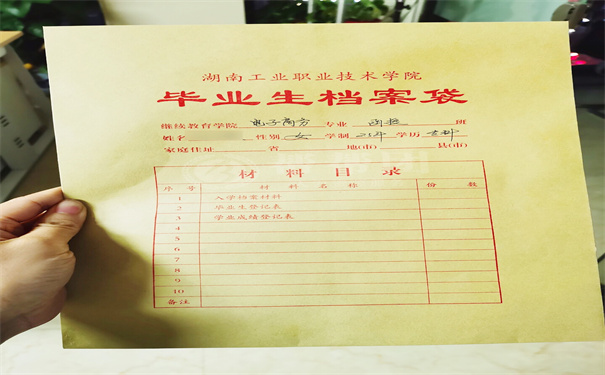 湖南工业职业技术学院
毕业生档案袋
继续教育学院 电子商务 专业 函授 班
姓名 性别 女 学制 2.5年 学历 专科
家庭住址 省 地(市) 县(市)
材料目录
序号 材料名称 份数
1 入学档案材料
2 毕业生登记表
3 学业成绩登记表
4
5
6
7
8
9
10
备注